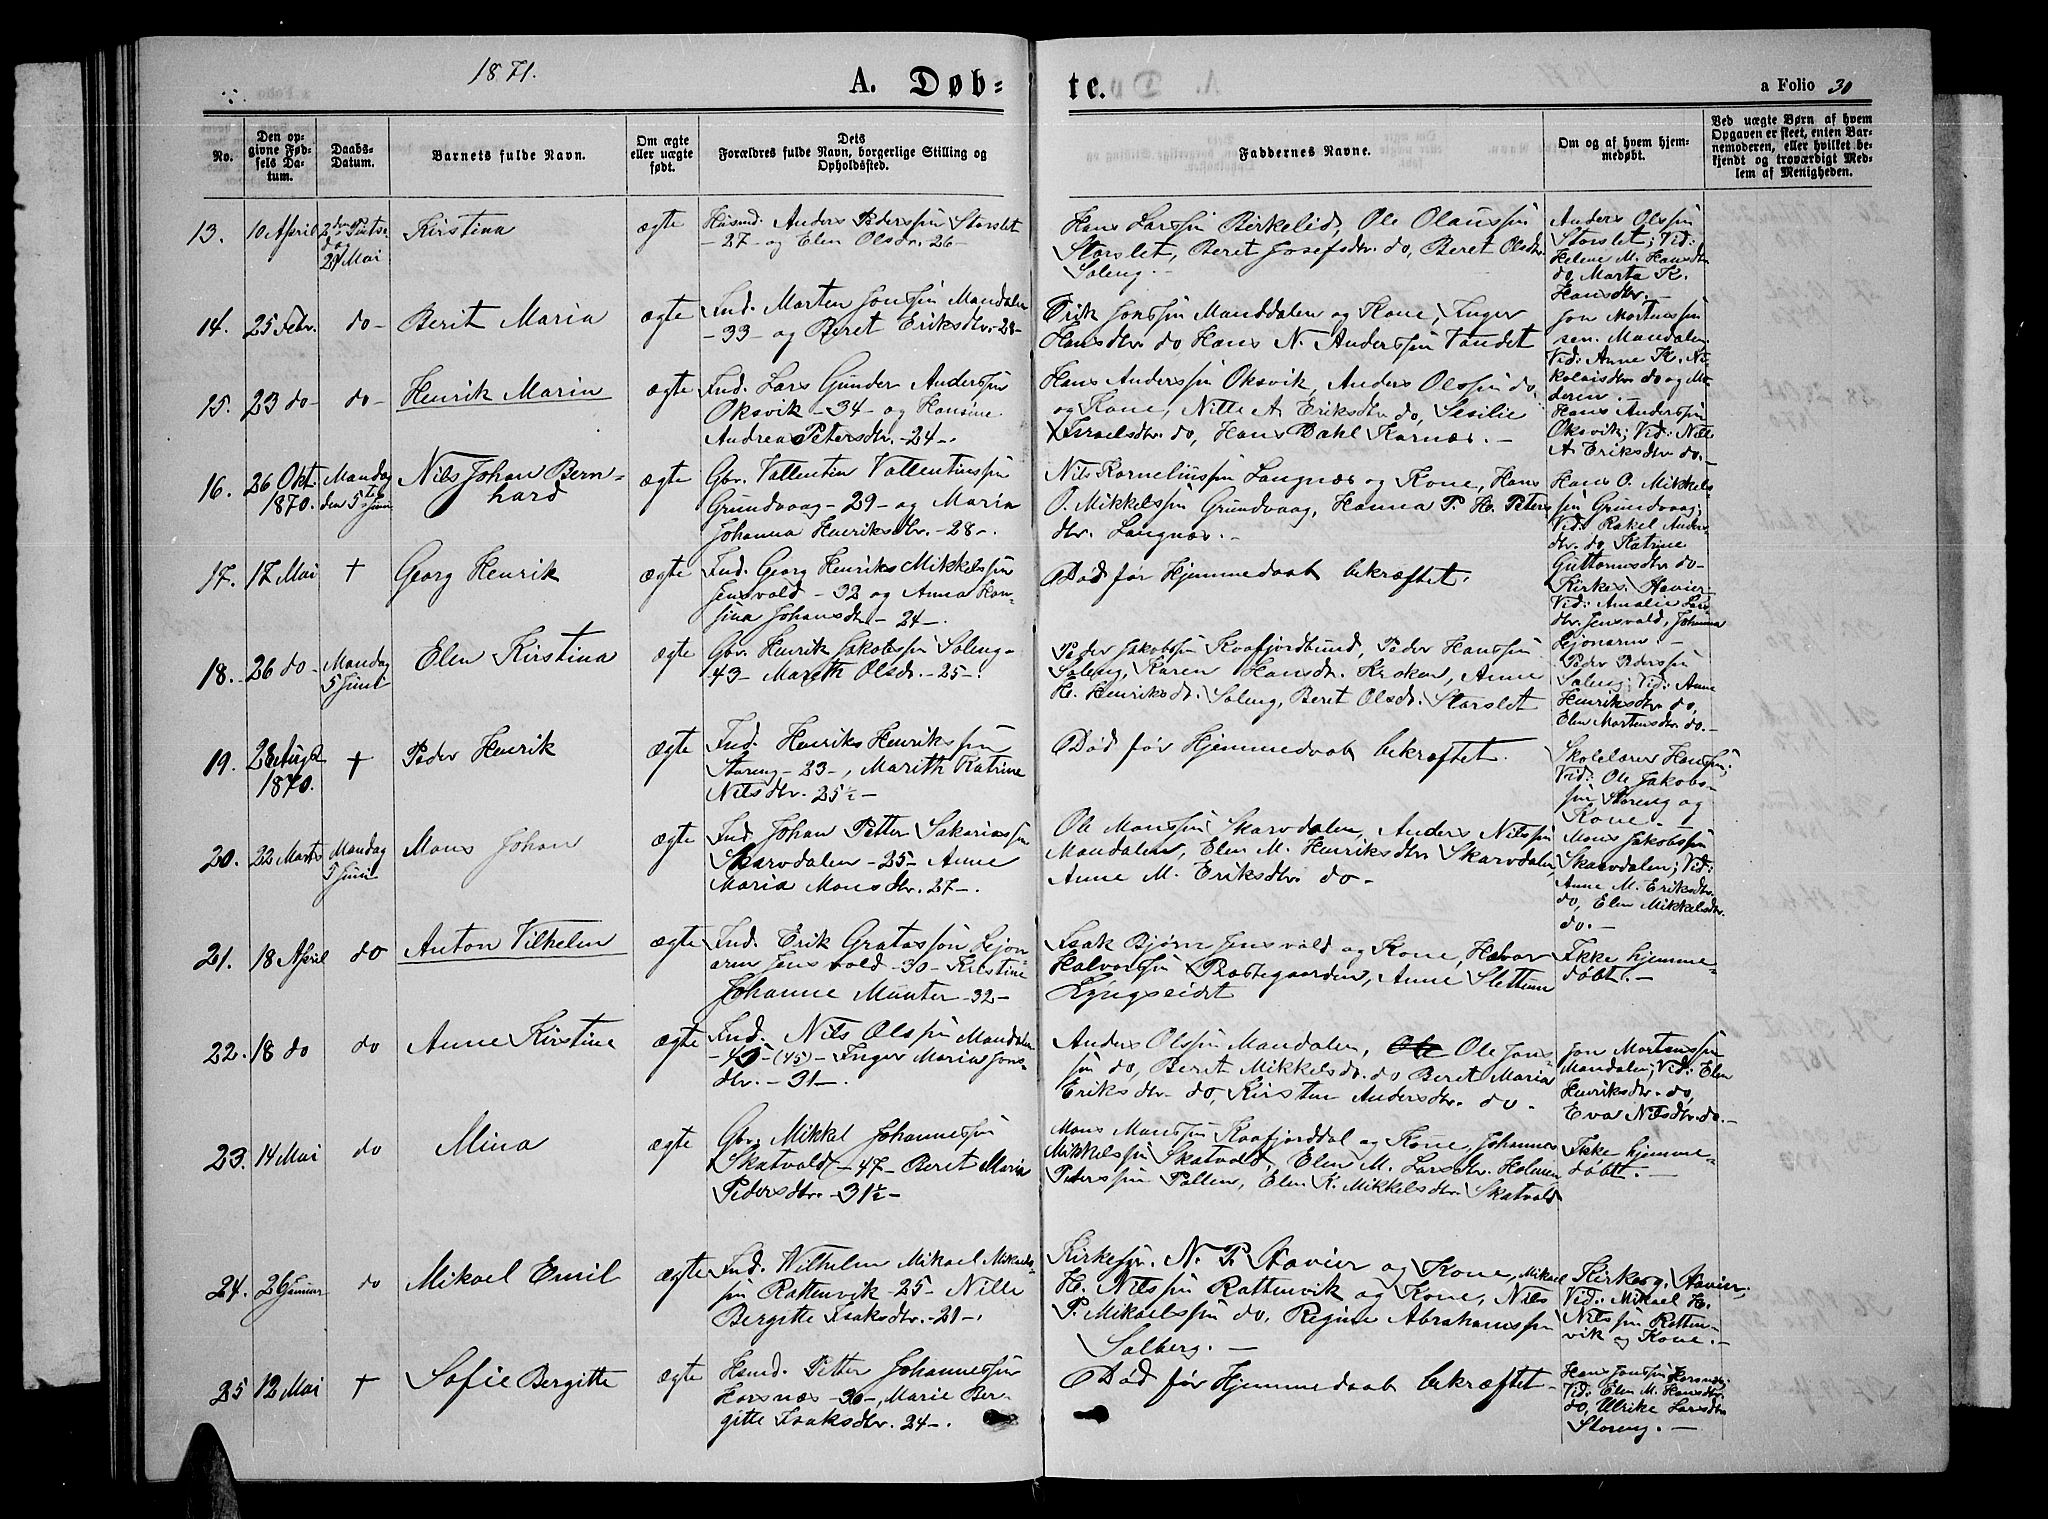 1871.
A. Døb-
te.
a Folio 30
No.
Den op-
givne Fød-
sels Da-
tum.
Daabs-
Datum.
Barnets fulde Navn.
Om ægte
eller uægte
født.
Dets
Forældres fulde Navn, borgerlige Stilling og
Opholdssted.
Faddernes Navne.
Om og af hvem hjem-
medøbt.
Ved uægte Børn af hvem
Opgaven er skeet, enten Bar-
nemoderen, eller hvilket be-
kjendt og troværdigt Med-
lem af Menigheden.
13.
10 April
2den Pintse
dag
29 Mai
Kirstina
ægte
Husmd. Anders Pederssøn Storslet
- 27 - og Elen Olsdr. 26 -
Hans Larssøn Birkelid, Ole Olaussøn
Storslet, Beret Josefsdtr. do, Beret Olsdtr.
Soleng. -
Anders Olssøn
Storslet; Vid:
Helene M. Hansdtr.
do, Marta K.
Hansdtr. -
14.
25 Febr.
do -
Berit Maria
ægte
Ind. Morten Jonssøn Mandalen
- 33 - og Beret Eriksdtr. 28 -
Erik Jonssøn Manddalen og Kone, Inger
Hansdtr. do Hans N. Anderssøn Vandet
Jon Mortenssøn
sen. Mandalen.
Vid: Anne K. Ni-
kolaisdtr. do og Mo-
deren. -
15.
23 do -
do -
Henrik Marin
ægte
Ind. Lars Gunder Anderssøn
Oksvik - 34 - og Hansine
Andrea Petersdtr. - 24 -.
Hans Anderssøn Oksvik, Anders Olssøn do.
og Kone, Nille A. Eriksdtr. do, Sesilie
Israelsdtr. do, Hans Dahl Karnæs. -
Hans Anderssøn
Oksvik; Vid: Nille
A. Eriksdtr. do. -
16.
26 Okt.
1870.
Mandag
den 5te Juni
Nils Johan Bern-
hard
ægte
Gbr. Vallentin Vallentinssøn
Grundvaag - 29 - og Maria
Johanna Henriksdtr. - 28 -.
Nils Korneliussøn Langnæs og Kone, Hans
O. Mikkelssøn Grundvaag, Hanna P. H. Peters
dtr. Langnæs. -
Hans O. Mikkels-
søn Grundvaag;
Vid: Rakel Anders-
dtr. do, Katrine
Guttormsdtr. do -
17.
17 Mai
†
Georg Henrik
ægte
Ind. Georg Henriks Mikkelssøn
Jensvold - 32 og Anna Han-
sina Johansdtr. - 24 -.
Død før Hjemmedaab bekræftet.
Kirkes. Havier
Vid: Amalie Lars-
dtr. Jensvold, Johanna
Lejonarm -
18.
26 do -
Mandag
5 Juni
Elen Kirstina
ægte
Gbr. Henrik Jakobssøn Soleng -
43 - Marith Olsdr. - 25 -.
Peder Jakobssøn Kaafjordbund, Peder Hanssøn
Soleng, Karen Hansdtr. Kroken, Anne
H. Henriksdr. Soleng, Beret Olsdr. Storslet
Peder Pederssøn
Soleng; Vid: Anne
Henriksdtr. do,
Elen Mortensdtr. do. -
19.
1870.
†
Peder Henrik
ægte
Ind. Henriks Henrikssøn
Storeng - 23 -, Marith Katrine
Nilsdtr. 25½ -
Død før Hjemmedaab bekræftet.
Skolelærer Hanssøn;
Vid: Ole Jakobs-
søn Storeng og
Kone. -
20.
22 Marts
Mandag
5 Juni
Mons Johan
ægte
Ind. Johan Petter Sakariassøn
Skarvdalen - 25 - Anne
Maria Monsdtr. 27 -.
Ole Monssøn Skarvdalen, Anders Nilssøn
Mandalen, Elen M. Henriksdtr. Skarvdalen,
Anne M. Eriksdtr. do -
Mons Jakobssøn
Skarvdalen; Vid:
Anne M. Eriksdtr.
do, Elen Mikkelsdtr.
do. -
21.
18 April
do
Anton Vilhelm
ægte
Ind. Erik Gratassøn Lejon-
arm Jensvold - 30 - Kirstine
Johanne Munter - 32 -
Isak Bjørn Jensvold og Kone, Havor
Halvorssøn Præstegaarden, Anne Slettum
Lyngseidet
Ikke hjemme-
døbt. -
22.
18 do
do
Anne Kirstine
ægte
Ind. Nils Olssøn Mandalen
- 45 - (45) - Inger Maria Jons-
dtr. - 31 -.
Anders Olssøn Mandalen, Ole Jons-
søn do, Beret Mikkelsdr. do Beret Maria
Eriksdtr. do, Kirsten Andersdtr. do.
Jon Mortenssøn
Mandalen; Vid: Elen
Henriksdtr. do,
Eva Nilsdtr. do. -
23.
14 Mai
do
Mina
ægte
Gbr. Mikkel Johannessøn
Skatvold - 47 - Beret Maria
Pedersdtr. - 31½ -
Mons Monssøn Kaafjorddal og Kone, Johannes
Mikkelssøn Skatvold, Elen M. Larsdtr. Holmen
Peterssøn Pollen, Elen K. Mikkelsdtr. Skatvold
Ikke hjemme-
døbt. -
24.
26 Januar
do
Mikael Emil
ægte
Ind. Wilhelm Mikael Mikaels-
søn Rottenvik - 25 - Nille
Bergitte Isaksdtr. - 21 -.
Kirkesgr. N. P. Havier og Kone, Mikael
H. Nilssøn Rottenvik og Kone, Nils
P. Mikaelssøn do, Regine Abrahamssøn
Solberg. -
Kirkesg. Havier,
Vid: Mikael H.
Nilssøn Rotten-
vik og Kone. -
25
12 Mai
†
Sofie Bergitte
ægte
Hsmd. Petter Johannessøn
Horsnæs - 30 -, Marie Ber-
gitte Isaksdtr. 24 -.
Død før Hjemmedaab bekræftet -
Hans Jonssøn Horsnæs;
Vid: Elen M. Hansdtr.
do, Ulrike Larsdtr.
Storeng. -